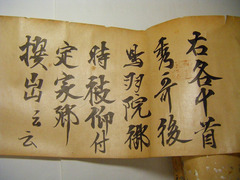 右各十首
秀哥後
鳥羽院御
時被仰付
定家卿
撰出云云